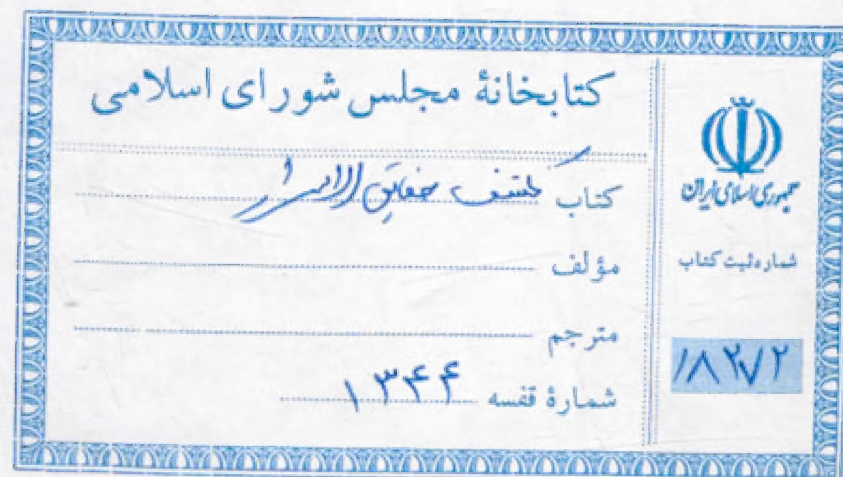 کتابخانهٔ مجلس شورای اسلامی
کتاب کشف حقایق الاسرار
مؤلف
مترجم
شمارهٔ قفسه ۱۳۴۴
جمهوری اسلامی ایران
شماره ثبت کتاب
۱۸۲۷۲